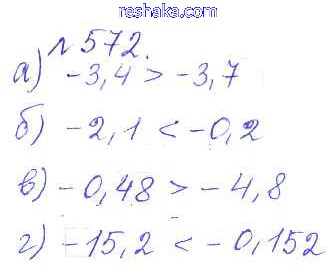 reshaka.com
№572.
а) -3,4 > -3,7
б) -2,1 < -0,2
в) -0,48 > -4,8
г) -15,2 < -0,152